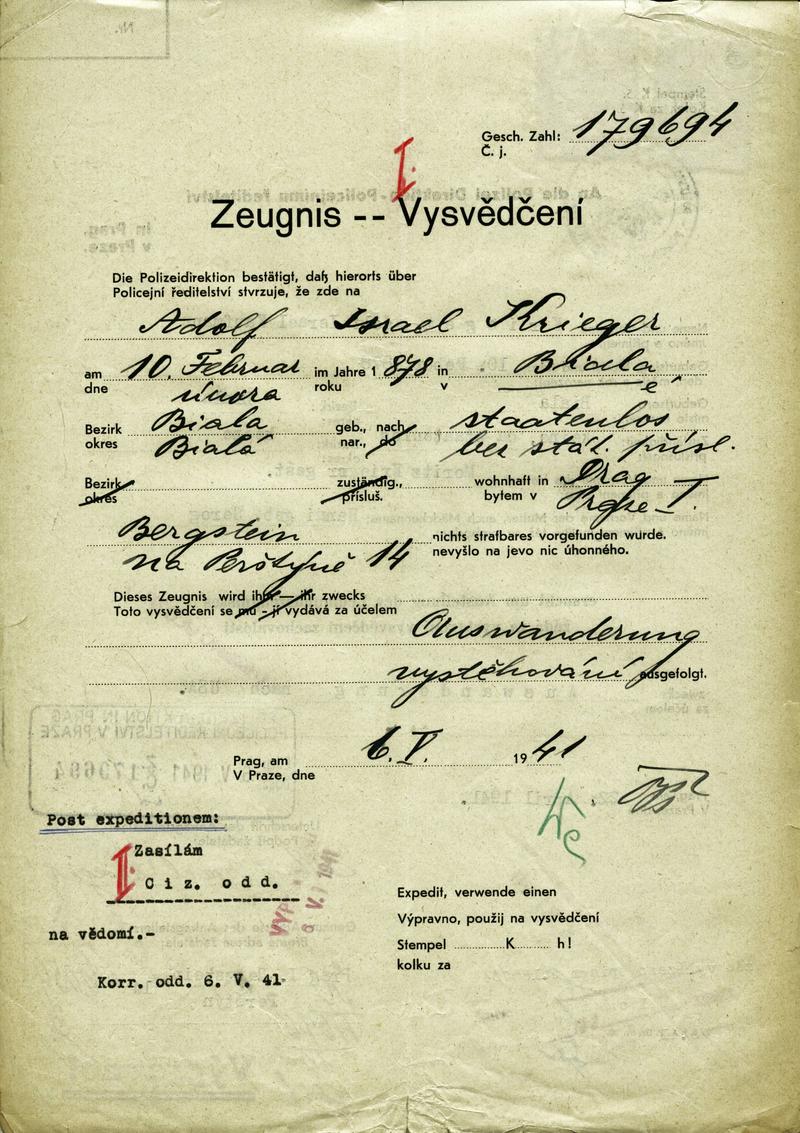 Gesch. Zahl: 179694
Č. j.
I.
Zeugnis -- Vysvědčení
Die Polizeidirektion bestätigt, daß hierorts über
Policejní ředitelství stvrzuje, že zde na
Adolf Israel Krieger
am 10. Februar im Jahre 1 878 in Biala
dne února roku v é
Bezirk Biala geb., nach staatenlos
okres Bialá nar., do bez stát. přísl.
Bezirk zuständig., wohnhaft in Prag
okres přísluš. bytem v Praze I.
Bergstein nichts strafbares vorgefunden wurde.
na Perštýně 14 nevyšlo na jevo nic úhonného.
Dieses Zeugnis wird ihm — ihr zwecks
Toto vysvědčení se mu - jí vydává za účelem
Auswanderung
vystěhování ausgefolgt.
Prag, am 6. V. 19 41
V Praze, dne
Post expeditionem:
Zasílám
I. C i z. o d d.
na vědomí.-
Korr. odd. 6. V. 41
Expedit, verwende einen
Výpravno, použij na vysvědčení
Stempel K h!
kolku za